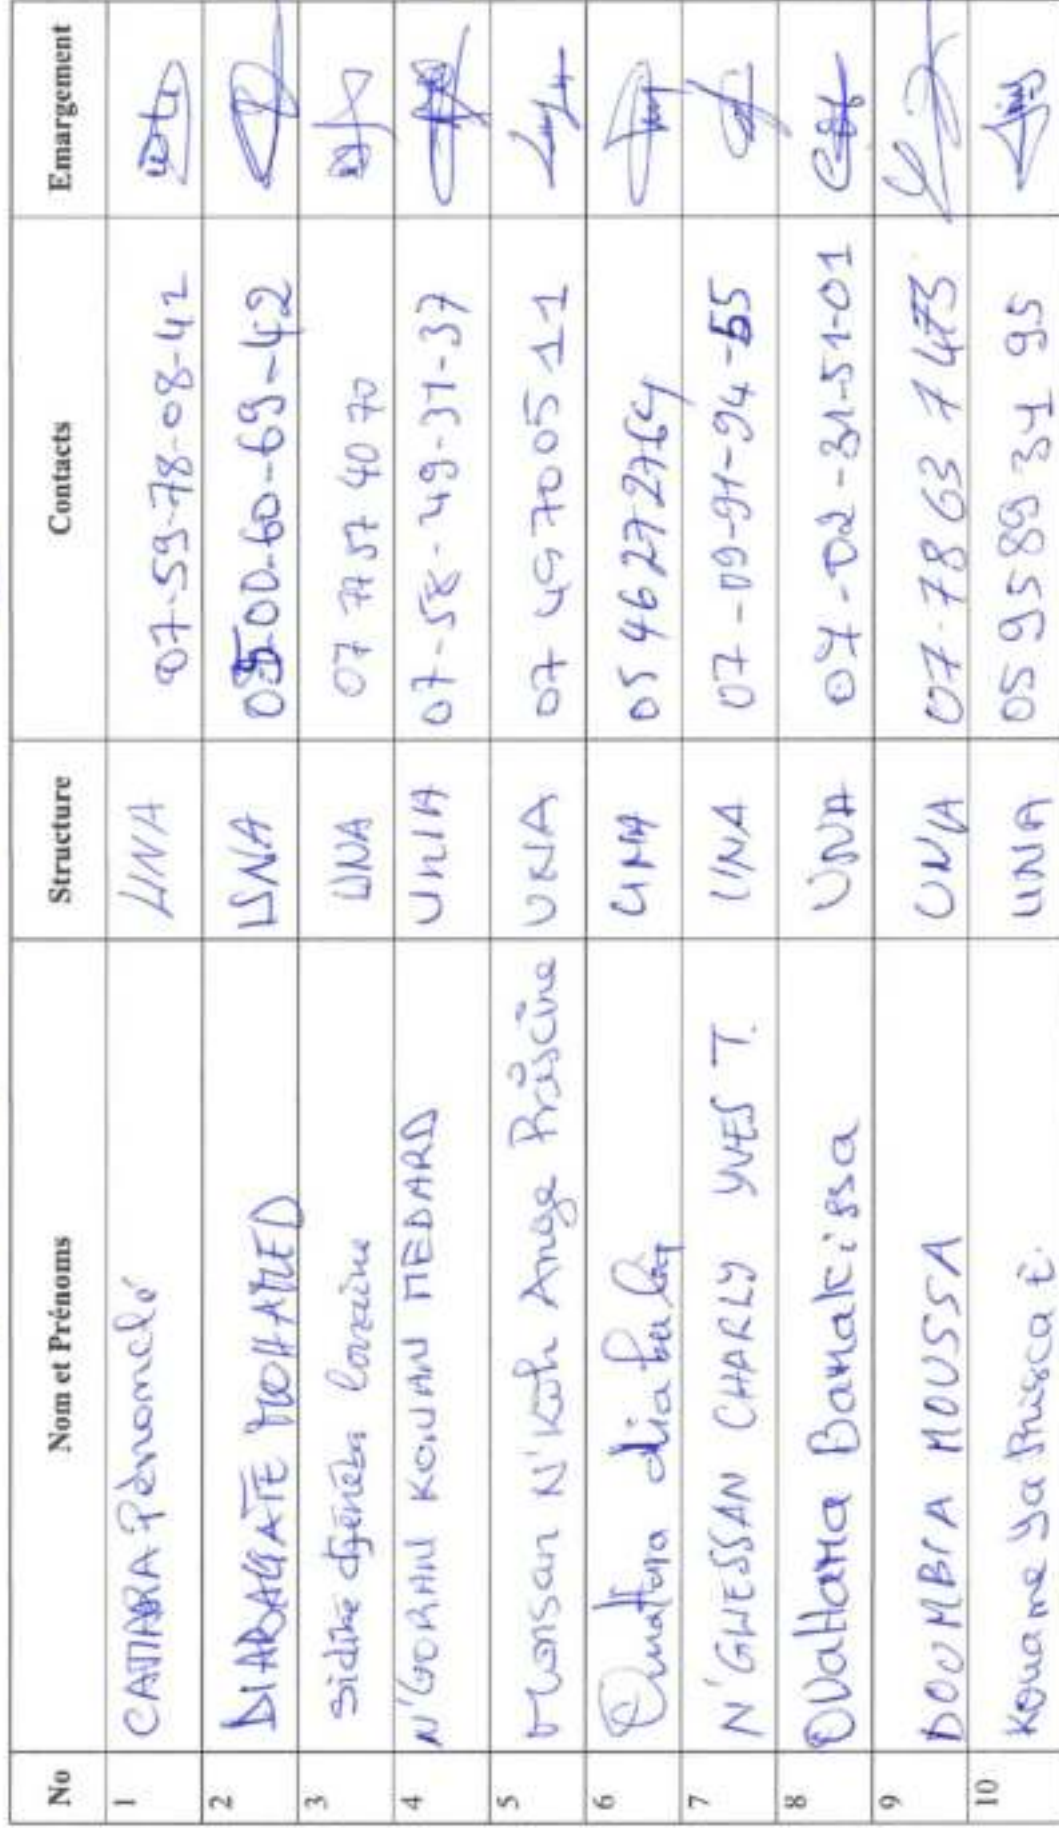 No Nom et Prénoms Structure Contacts Emargement
1 CAMARA Pènomclé UNA 07-59-78-08-42
2 DIARAGATE MOHAMED UNA 0500-60-69-42
3 Sidike djénéba lorraine UNA 07 77 57 40 70
4 N'GORAN KONAN MEDARD UNA 07-58-49-31-37
5 N'Koh Ange Priscine UNA 07 49 70 05 11
6 Ouattara UNA 05 46 27 27 64
7 N'GUESSAN CHARLY YVES T. UNA 07-09-91-94-55
8 OUattara Banakissa UNA 07-02-31-51-01
9 DOUMBIA MOUSSA UNA 07 78 63 7 473
10 Kouame Ya Prisca E. UNA 05 95 89 34 95